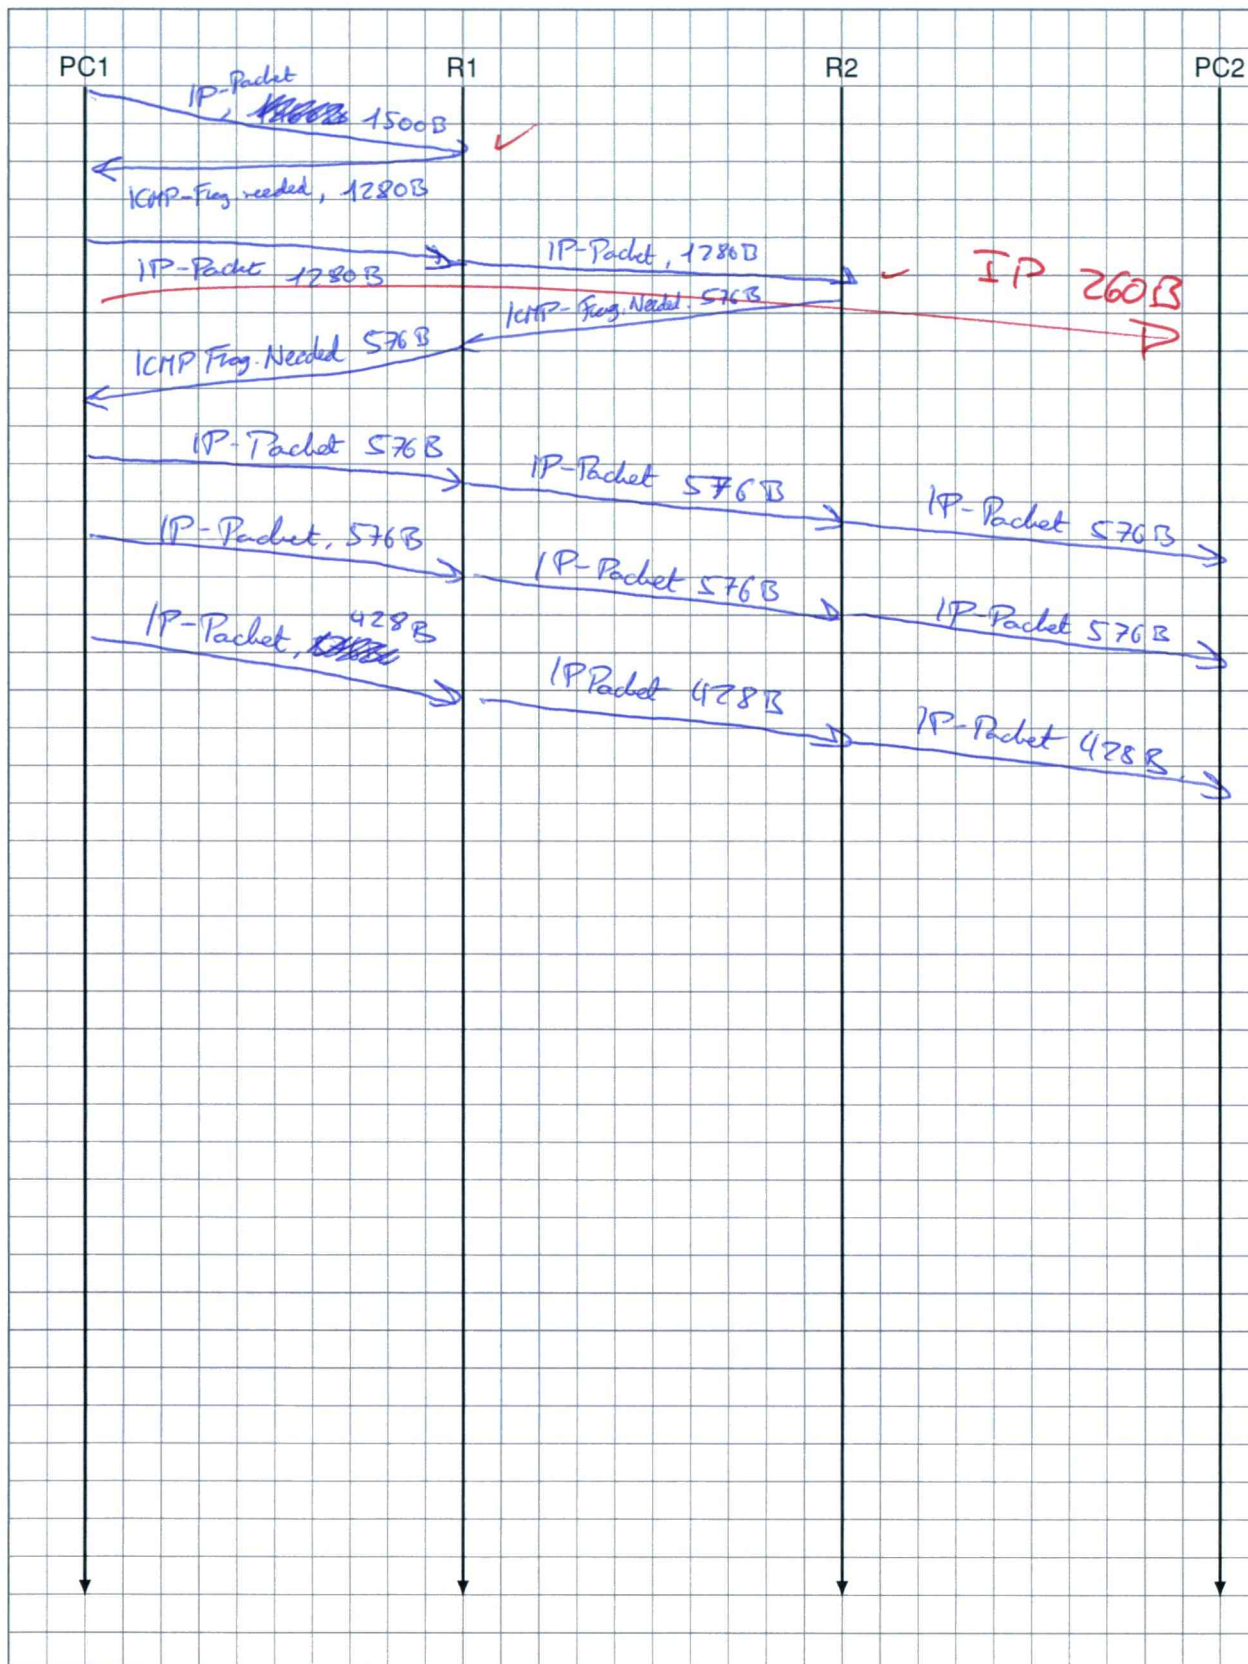 PC1 R1 R2 PC2
IP-Packet
, 1500B
ICMP-Frag. needed, 1280B
IP-Packet 1280B
IP-Packet, 1280B
IP 260B
ICMP-Frag. Needed. 576B
ICMP Frag. Needed 576B
IP-Packet 576B
IP-Packet 576B
IP-Packet 576B
IP-Packet, 576B
IP-Packet 576B
IP-Packet 576B
IP-Packet, 428B
IP Packet 428B
IP-Packet 428B